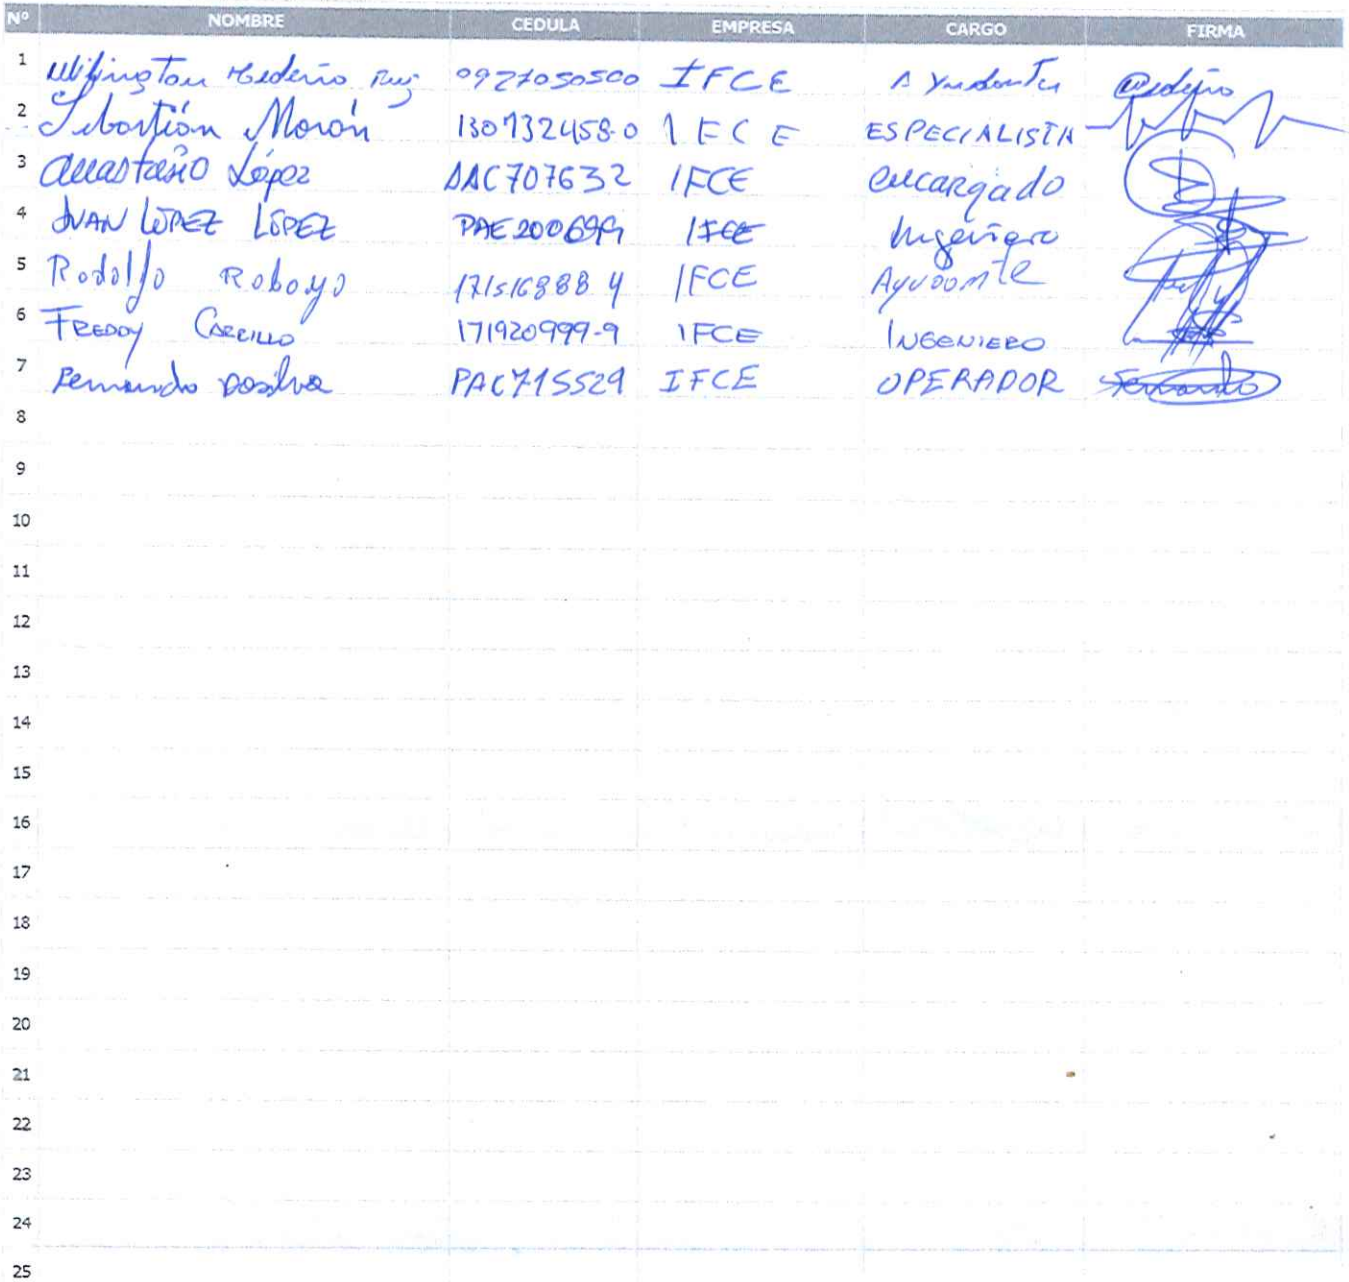 Nº NOMBRE CEDULA EMPRESA CARGO FIRMA
1 Cedeño Ruiz 0927050500 IFCE Ayudante Cedeño
2 Sebastián Morán 130732458-0 IFCE ESPECIALISTA
3 Anastasio López AAC707632 IFCE encargado
4 JUAN LÓPEZ LÓPEZ PAE200699 IFCE Ingeniero
5 Rodolfo Robayo 171516888 4 IFCE Ayudante
6 FREDDY CARRILLO 171920999-9 IFCE INGENIERO
7 Fernando Dasilva PAC715529 IFCE OPERADOR Fernando
8
9
10
11
12
13
14
15
16
17
18
19
20
21
22
23
24
25